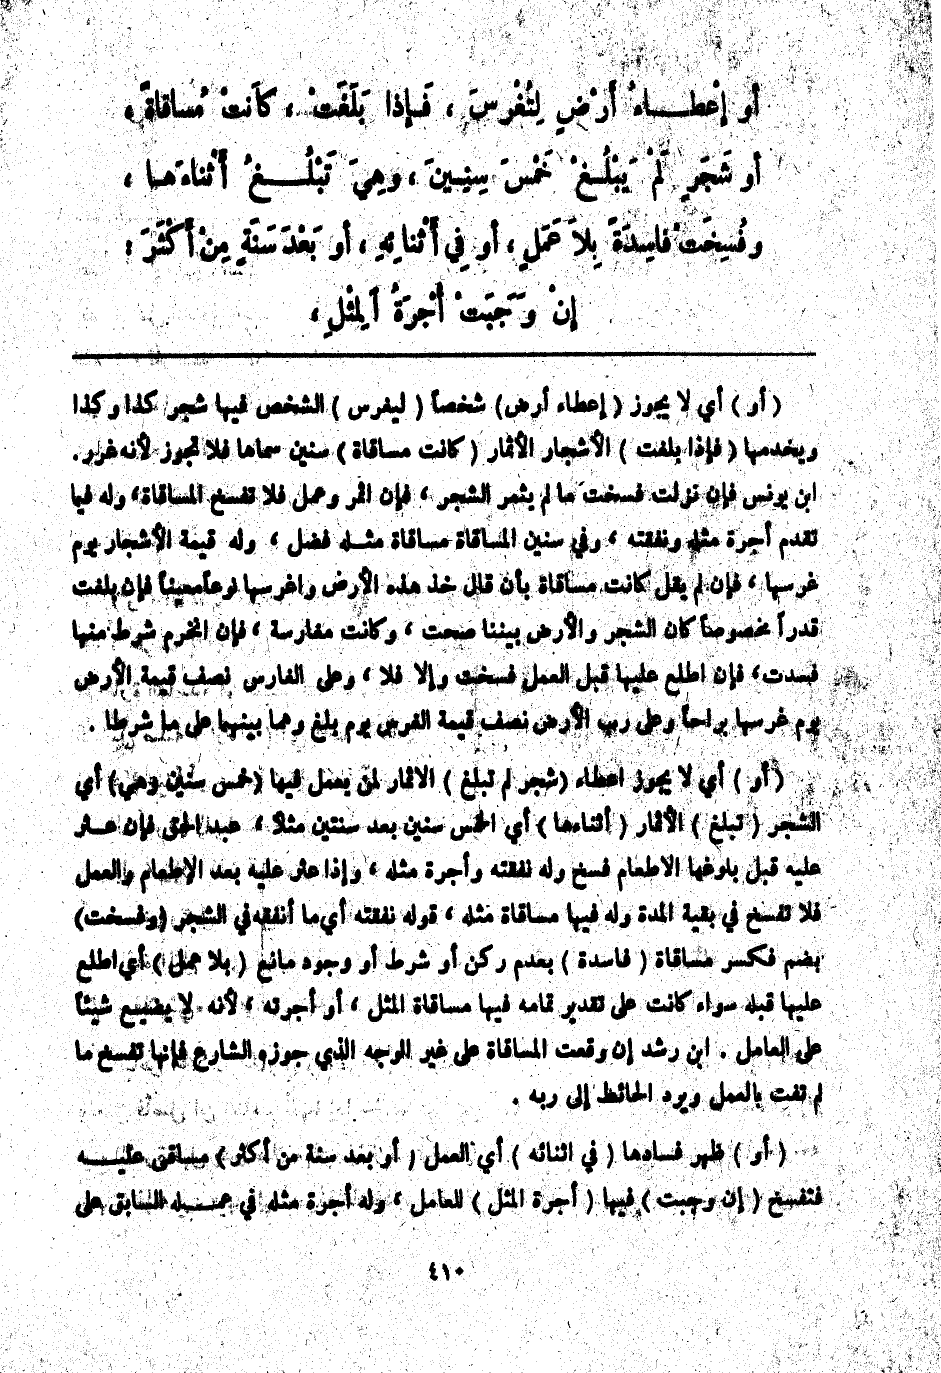 أو إِعْطَـــاءُ أَرْضٍ لِتُغْرَسَ ، فَـإِذا بَلَغَتْ ، كَانَتْ مُساقاةً ،
أو شَجَرٍ لَمْ يَبْلُـغْ خَمْسَ سِنِـينَ ، وهِيَ تَبْلُـــغُ أَثْناءَهـا ،
وفُسِخَتْ فاسِدَةً بِلاَ عَمَلٍ ، أو فِي أَثْنائِهِ ، أو بَعْدَ سَنَةٍ مِنْ أَكْثَرَ :
إِنْ وَجَبَتْ أُجْرَةُ اَلمِثْلِ ،
( أو ) أي لا يجوز ( إعطاء أرض ) شخصاً ( ليغرس ) الشخص فيها شجر كذا وكذا
ويخدمها ( فإذا بلغت ) الأشجار الأثمار ( كانت مساقاة ) سنين سماها فلا تجوز لأنه غرر .
ابن يونس فإن نزلت فسخت ما لم يثمر الشجر ، فإن اثمر وعمل فلا تفسخ المساقاة ، وله فيا
تقدم أجرة مثله ونفقته ، وفي سنين المساقاة مساقاة مثـله فضل ، وله قيمة الأشجار يوم
غرسها ، فإن لم يقل كانت مساقاة بأن قال خذ هذه الأرض واغرسها نوعاً معيناً فإن بلغت
قدراً مخصوصاً كان الشجر والأرض بيننا صحت ، وكانت مغارسة ، فإن انخرم شرط منها
فسدت ، فإن اطلع عليها قبل العمل فسخت وإلا فلا ، وعلى الغارس نصف قيمة الأرض
يوم غرسها براحاً وعلى رب الأرض نصف قيمة الغرس يوم بلغ وهما بينهما على ما شرطا .
( أو ) أي لا يجوز اعطاء (شجر لم تبلغ ) الاثمار لمن يعمل فيها (خمس سنين وهي) أي
الشجر ( تبلغ ) الأثمار ( أثناءها ) أي الخمس سنين بعد سنتين مثلاً ، عبد الحق فإن عـثر
عليه قبل بلوغها الاطعام فسخ وله نفقته وأجرة مثله ، وإذا عثر عليه بعد الإطعام والعمل
فلا تفسخ في بقية المدة وله فيها مساقاة مثله ، قوله نفقته أي ما أنفقه في الشجر (وفسخت)
بضم فكسر مساقاة ( فاسدة ) بعدم ركن أو شرط أو وجود مانع ( بلا عمل ) أي اطلع
عليها قبله سواء كانت على تقدير تمامه فيها مساقاة المثل ، أو أجرته ، لأنه لا يضيع شيئاً
على العامل . ابن رشد إن وقعت المساقاة على غير الوجه الذي جوزه الشارع فإنها تفسخ ما
لم تفت بالعمل ويرد الحائط إلى ربه .
( أو ) ظهر فسادها ( في اثنائه ) أي العمل ( أو بعد سنة من أكثر ) مساقى عليـــه
فتفسخ ( إن وجبت ) فيها ( أجرة المثل ) للعامل ، وله أجرة مثله في عمـــله السابق على
٤١٠